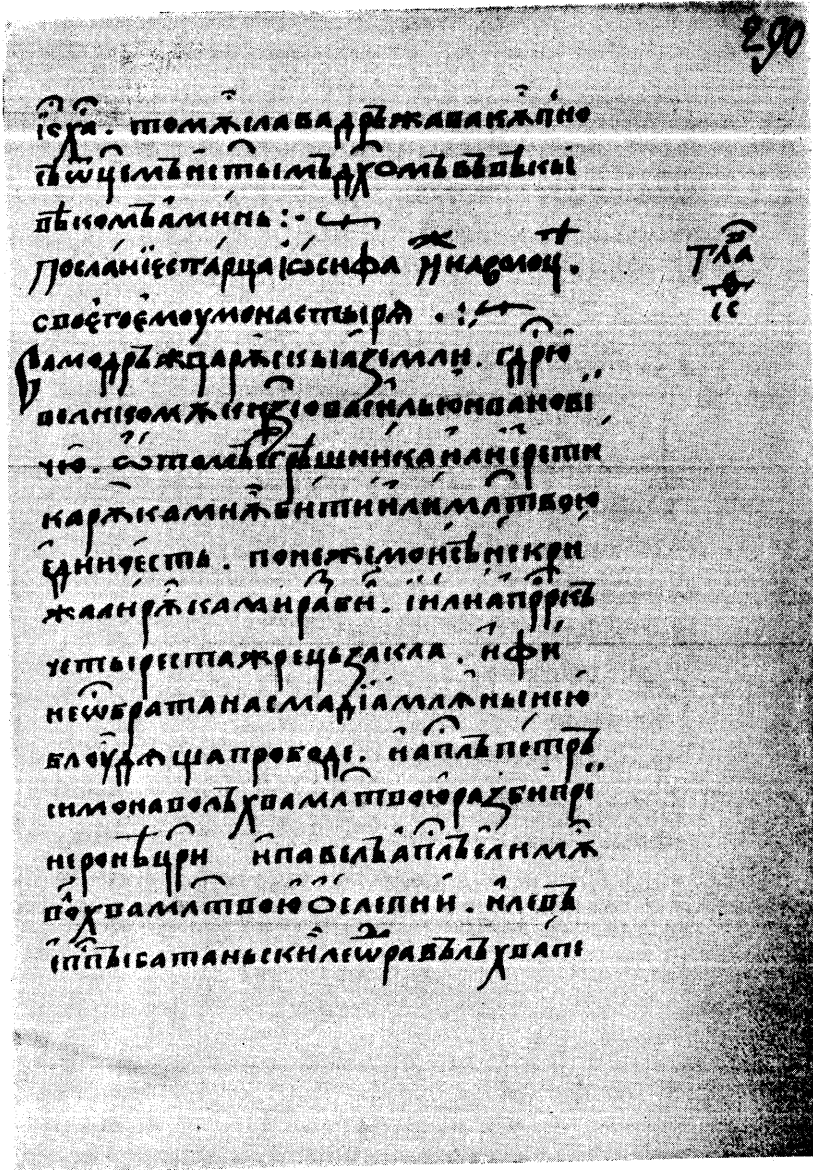 290
і҆с х҃а . томѫ слава дръжава кѫпно
съ ѿц҃емъ и҆ ст҃ымъ дх҃омъ въ вѣкы
вѣкомъ а҆минь :-
Посланїе старца іѡ҆сифа иже на волоц .
своего ему монастырѧ . :
Самодръжца рѫскыа земли . гдрю
великомѫ кнѕю василью иванови
чю . ѿ толь грѣшника или еретни
ка рѫками ѫбити или млтвою
едино есть . понеже моисѣи скри
жали рѫками разби . илиа прркъ
четыреста жрець закла . и фи
несъ брата на с мадіамлѧнынею
блоудѧща прободе . и апслъ петръ
симона волъхва млтвою разби при
неронѣ цри и павелъ апслъ елимѫ
волхва млтвою ослепи и . и левъ
епспъ катаньскии леѡра вълъхва пе
гла
ів